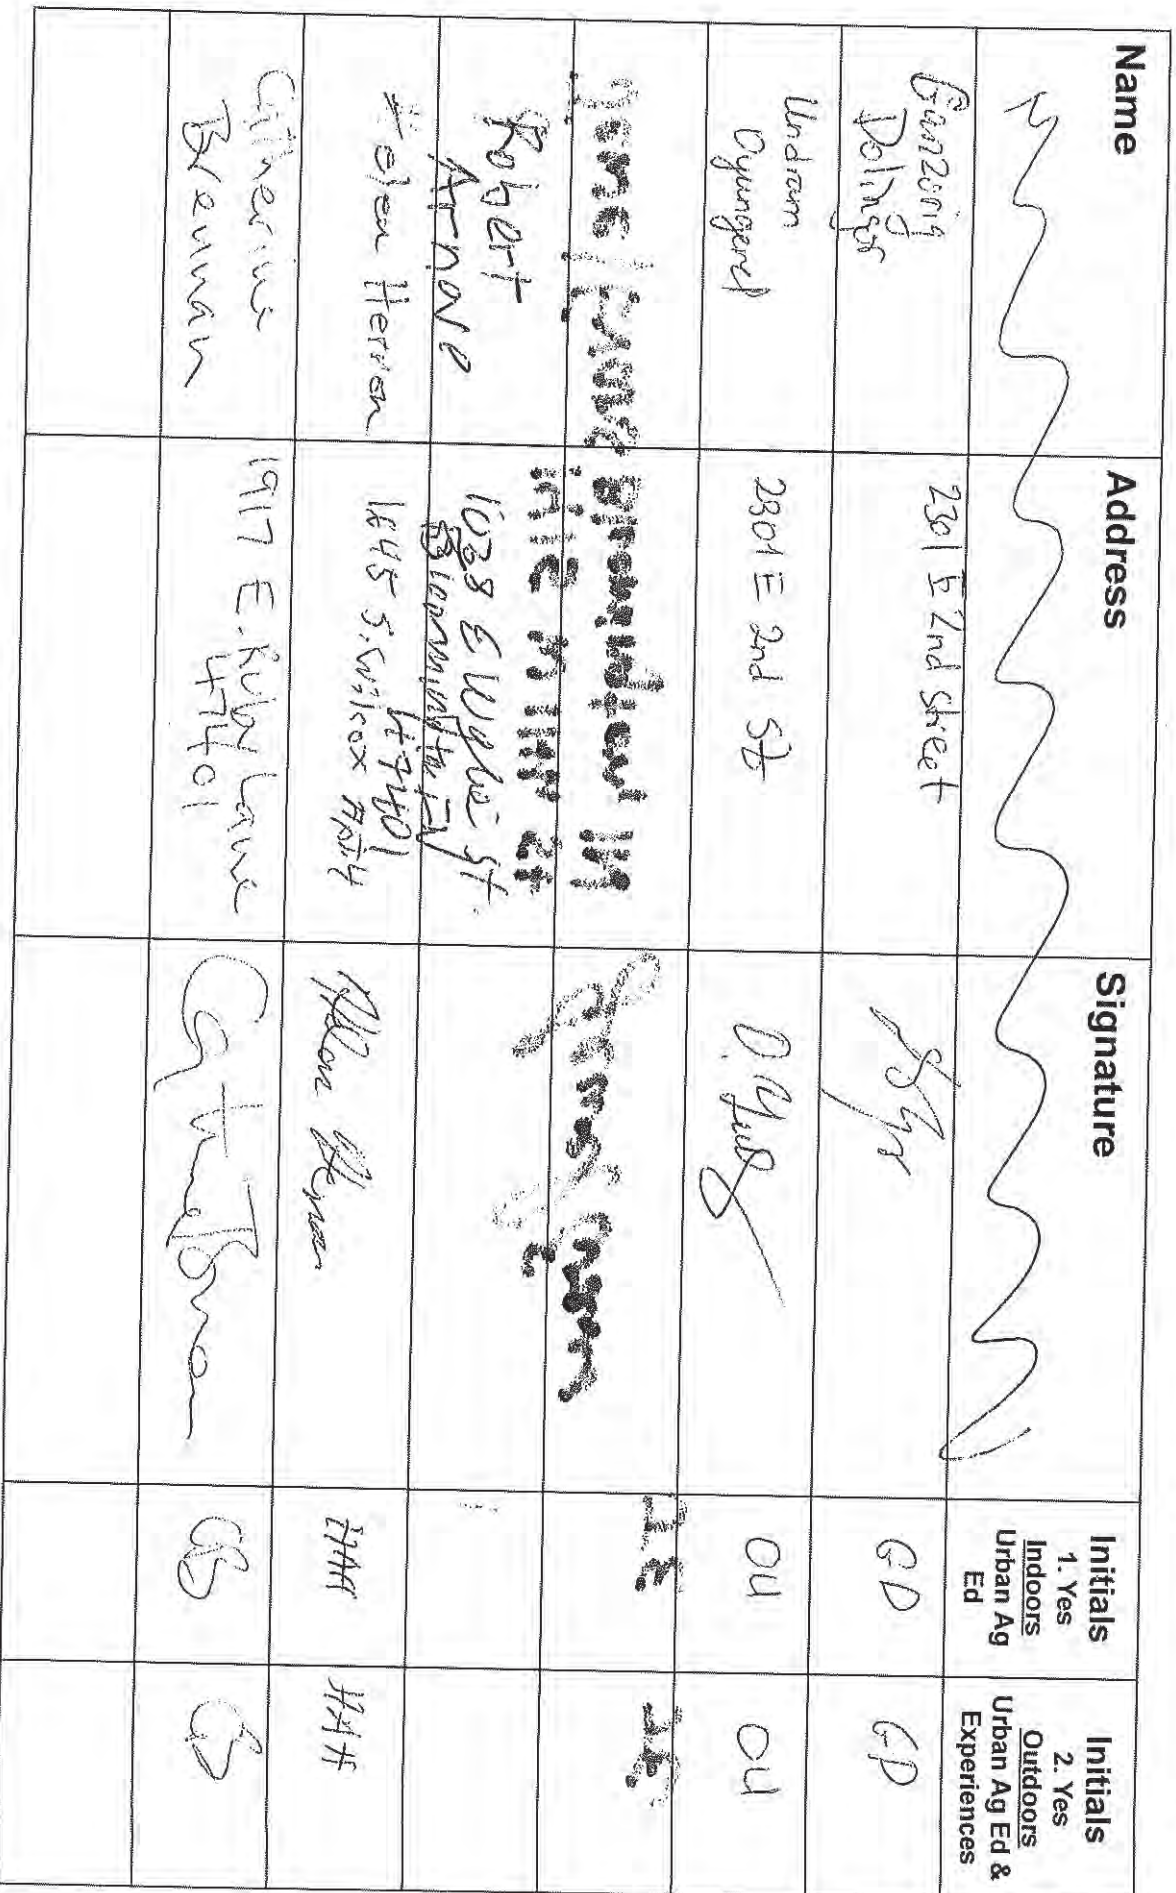 Name Address Signature Initials 1. Yes Indoors Urban Ag Ed Initials 2. Yes Outdoors Urban Ag Ed & Experiences
Ganzorig
Dolingor
2301 E 2nd Street
GD GD
Undram
Oyungerel
2301 E 2nd St
OU OU
Bloomington IN
Robert
Arnove
1028 E Wylie St.
Bloomington IN
47401
Helen Herron
1645 S. Wilcox Apt 4
HAH HAH
Catherine
Brennan
1917 E. Ruby Lane
47401
CB CB